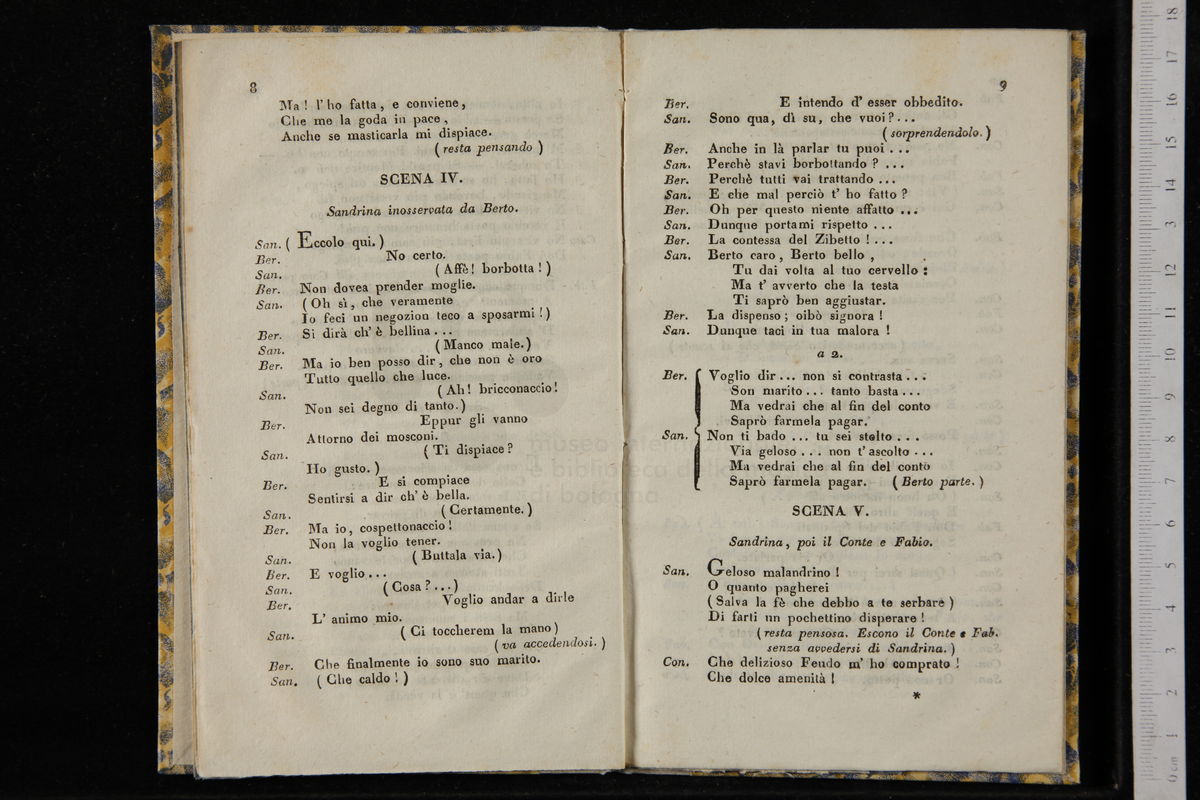 8
Ma! l'ho fatta, e conviene,
Che me la goda in pace,
Anche se masticarla mi dispiace.
(resta pensando)
SCENA IV.
Sandrina inosservata da Berto.
San. (Eccolo qui.)
Ber. No certo.
San. (Affè! borbotta!)
Ber. Non dovea prender moglie.
San. (Oh sì, che veramente
Io feci un negozion teco a sposarmi!)
Ber. Si dirà ch'è bellina...
San. (Manco male.)
Ber. Ma io ben posso dir, che non è oro
Tutto quello che luce.
San. (Ah! bricconaccio!
Non sei degno di tanto.)
Ber. Eppur gli vanno
Attorno dei mosconi.
San. (Ti dispiace?
Ho gusto.)
Ber. E si compiace
Sentirsi a dir ch'è bella.
San. (Certamente.)
Ber. Ma io, cospettonaccio!
Non la voglio tener.
San. (Buttala via.)
Ber. E voglio...
San. (Cosa?...)
Ber. Voglio andar a dirle
L'animo mio.
San. (Ci toccherem la mano)
(va accedendosi.)
Ber. Che finalmente io sono suo marito.
San. (Che caldo!)
9
Ber. E intendo d'esser obbedito.
San. Sono qua, dì su, che vuoi?...
(sorprendendolo.)
Ber. Anche in là parlar tu puoi...
San. Perchè stavi borbottando?...
Ber. Perchè tutti vai trattando...
San. E che mal perciò t'ho fatto?
Ber. Oh per questo niente affatto...
San. Dunque portami rispetto...
Ber. La contessa del Zibetto!...
San. Berto caro, Berto bello,
Tu dai volta al tuo cervello:
Ma t'avverto che la testa
Ti saprò ben aggiustar.
Ber. La dispenso; oibò signora!
San. Dunque taci in tua malora!
a 2.
Ber. Voglio dir... non si contrasta...
Son marito... tanto basta...
Ma vedrai che al fin del conto
Saprò farmela pagar.
San. Non ti bado... tu sei stolto...
Via geloso... non t'ascolto...
Ma vedrai che al fin del conto
Saprò farmela pagar. (Berto parte.)
SCENA V.
Sandrina, poi il Conte e Fabio.
San. Geloso malandrino!
O quanto pagherei
(Salva la fè che debbo a te serbare)
Di farti un pochettino disperare!
(resta pensosa. Escono il Conte e Fab.
senza avvedersi di Sandrina.)
Con. Che delizioso Feudo m'ho comprato!
Che dolce amenità!
*